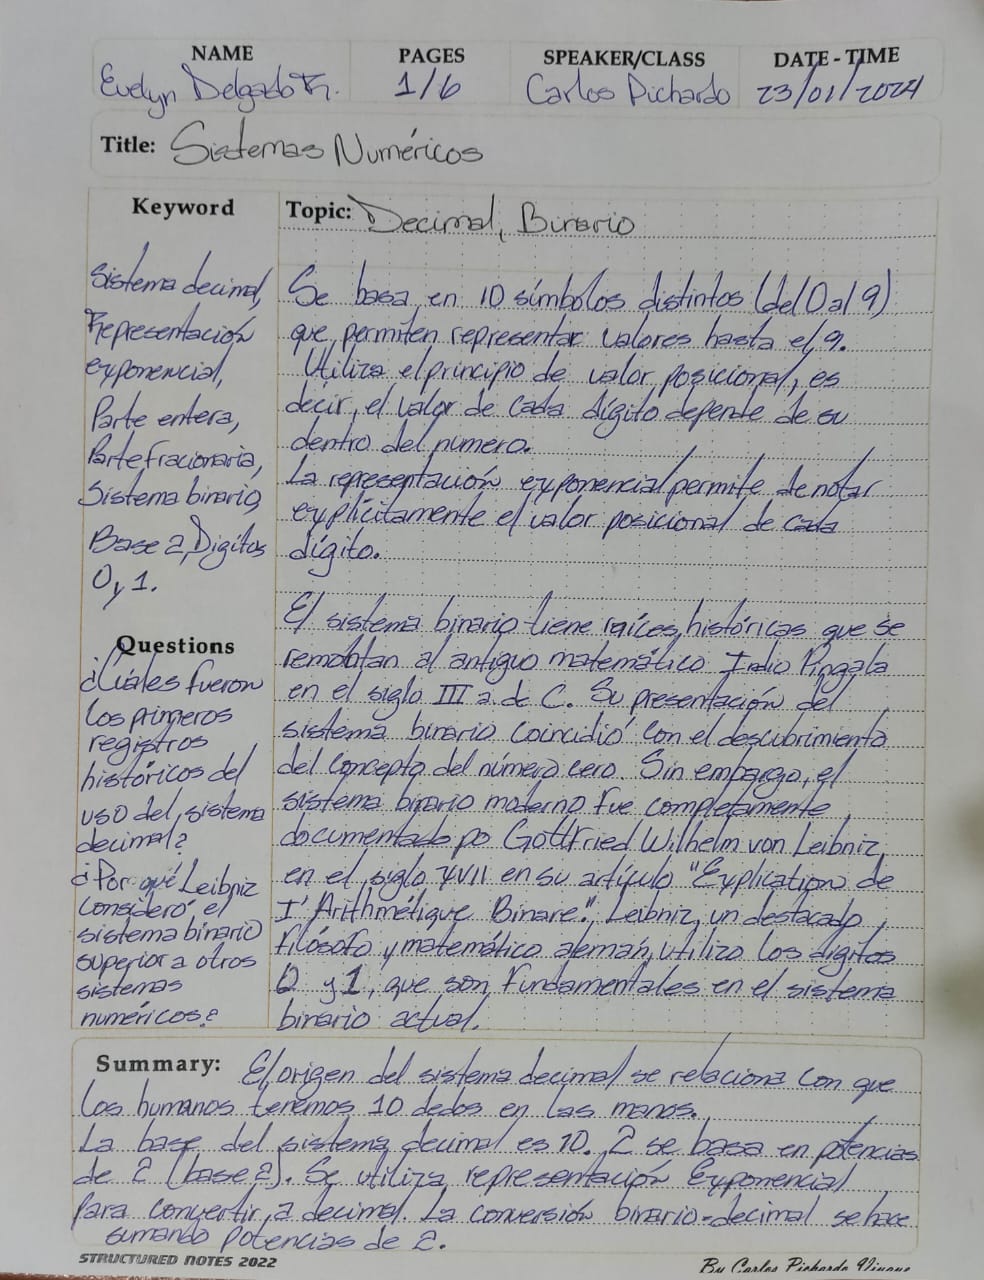 NAME PAGES SPEAKER/CLASS DATE - TIME
Evelyn Delgado R. 1/6 Carlos Pichardo 23/01/2024
Title: Sistemas Numéricos
Keyword
Sistema decimal,
Representación
exponencial,
Parte entera,
Parte fracionaria,
Sistema binario,
Base 2, Digitos
0 y 1.
Questions
¿Cuáles fueron
los primeros
registros
históricos del
uso del sistema
decimal?
¿Por qué Leibniz
consideró el
sistema binario
superior a otros
sistemas
numéricos?
Topic: Decimal, Binario
Se basa en 10 símbolos distintos (del 0 al 9)
que permiten representar valores hasta el 9.
Utiliza el principio de valor posicional, es
decir, el valor de cada dígito depende de su
dentro del numero.
La representación exponencial permite denotar
explícitamente el valor posicional de cada
dígito.
El sistema binario tiene raíces históricas que se
remontan al antiguo matemático Indio Pingala
en el siglo III a de C. Su presentación del
sistema binario coincidió con el descubrimiento
del concepto del número cero. Sin embargo, el
sistema binario moderno fue completamente
documentado po Gottfried Wilhelm von Leibniz,
en el siglo XVII en su artículo "Explication de
I' Arithmétique Binare". Leibniz, un destacado
filósofo y matemático alemán, utilizo los dígitos
0 y 1, que son fundamentales en el sistema
binario actual.
Summary: El origen del sistema decimal se relaciona con que
los humanos tenemos 10 dedos en las manos.
La base del sistema decimal es 10. 2 se basa en potencias
de 2 (base 2). Se utiliza representación Exponencial
para convertir a decimal. La conversión binario-decimal se hace
sumando potencias de 2.
STRUCTURED NOTES 2022 By Carlos Pichardo Viuque